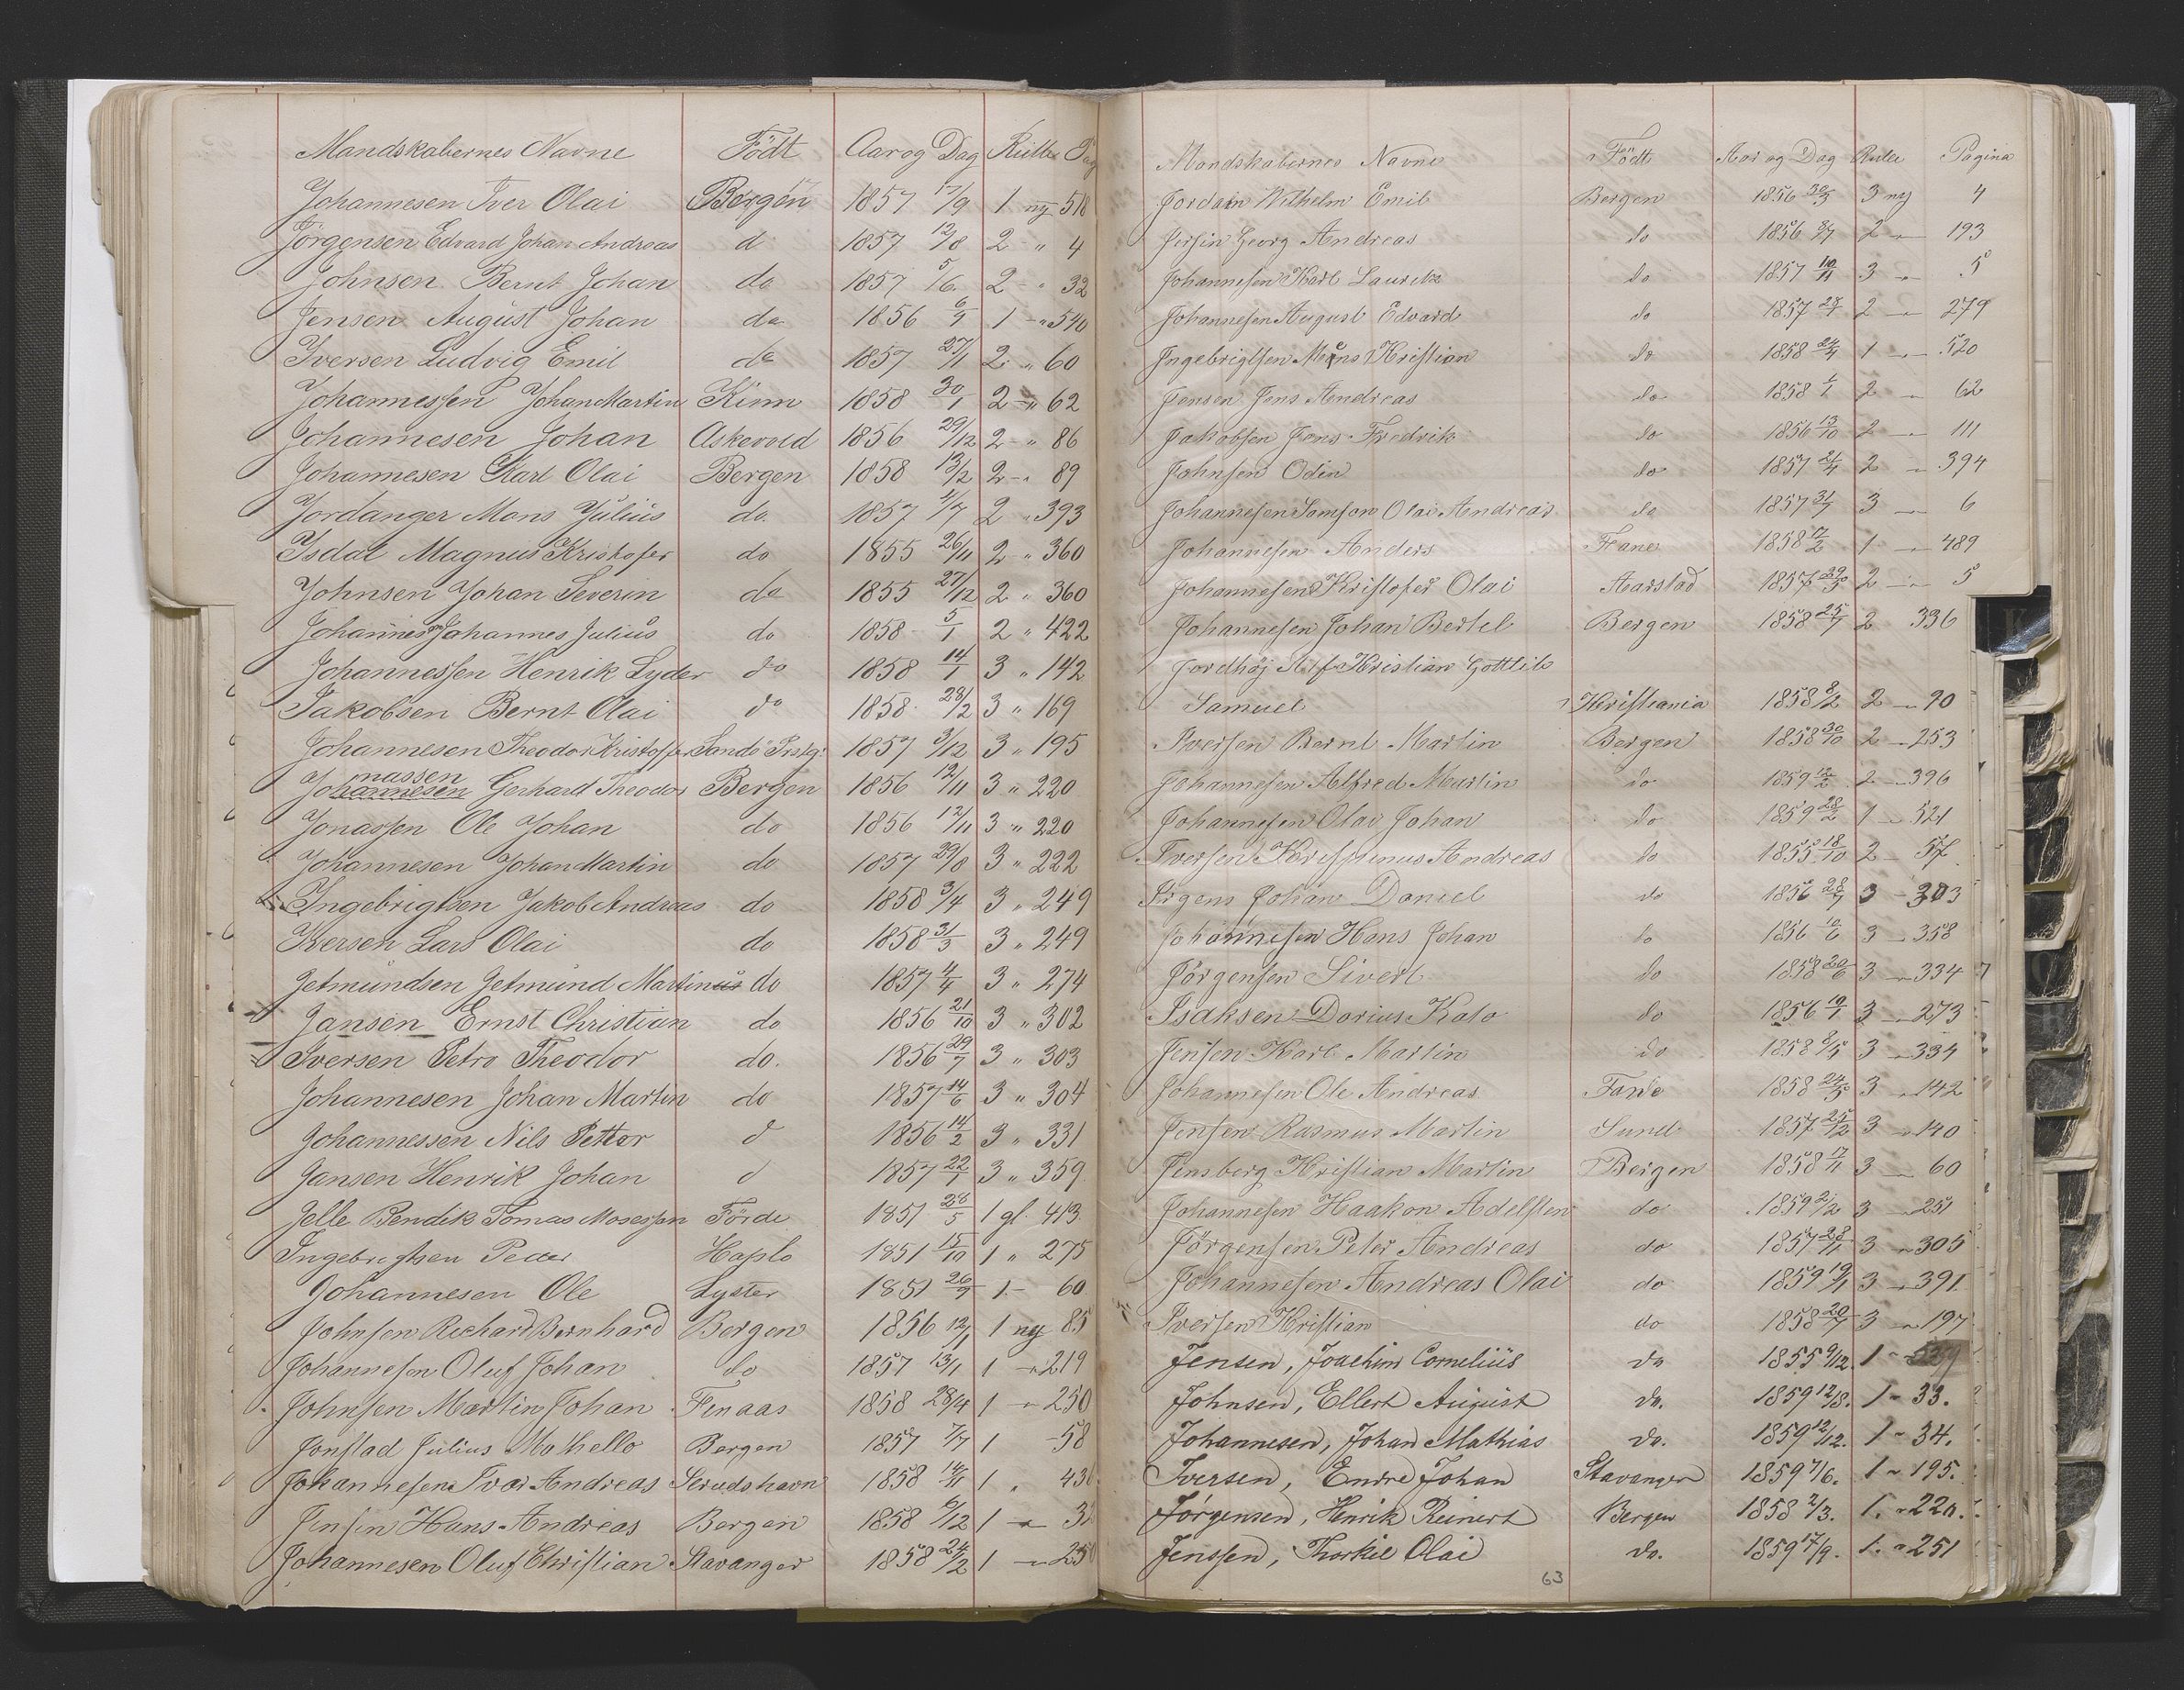 Mandskabernes Navne Födt Aar og Dag Rulle Pag
Johannesen Iver Olai Bergen 1857 17/9 1 ny 518
Jörgensen Edvard Johan Andreas d 1857 12/8 2 - " 4
Johnsen Bernt Johan do 1857 5/6 2 - " 32
Jensen August Johan do 1856 1 - " 540
Iversen Ludvig Emil do 1857 27/11 2 " 60
Johannessen Johan Martin Kinn 1858 30/1 2 - " 62
Johannesen Johan Askevold 1856 29/12 2 - " 86
Johannesen Karl Olai Bergen 1858 13/2 2 - " 89
Jordanger Mons Julius do. 1857 4/7 2 " 393
Isdal Magnus Kristofer do 1855 26/11 2 - " 360
Johnsen Johan Severin do 1855 27/12 2 " 360
Johannesen Johannes Julius do 1858 5/1 2 " 422
Johannessen Henrik Lyder do 1858 14/1 3 " 142
Jakobsen Bernt Olai do 1858 28/2 3 " 169
Johannesen Theodor Kristoffer Sandö Prstg. 1857 3/12 3 " 195
Johannesen nassen Gerhard Theodor Bergen 1856 12/11 3 " 220
Jonassen Ole Johan do 1856 12/11 3 " 220
Johannesen Johan Martin do 1857 29/8 3 " 222
Ingebrigtsen Jakob Andreas do 1858 3/4 3 " 249
Iversen Lars Olai do 1858 31/3 3 " 249
Jetmundsen Jetmund Martinus do 1857 4/4 3 " 274
Jansen Ernst Christian do 1856 21/10 3 " 302
Iversen Petro Theodor do. 1856 29/7 3 " 303
Johannesen Johan Martin do 1857 14/6 3 " 304
Johannessen Nils Petter d 1856 14/2 3 " 331
Jansen Henrik Johan d 1857 22/1 3 " 359
Jelle Bendik Tomas Mosessen Förde 1851 28/5 1 gl. 413
Ingebrigtsen Peder Haplo 1851 15/10 1 " 275
Johannesen Ole Lyster 1851 26/9 1 - 60
Johnsen Richard Bernhard Bergen 1856 12/1 1 ny 85
Johannesen Oluf Johan do 1857 13/1 1 - " 219
Johnsen Martin Johan Finaas 1858 28/4 1 - " 250
Jonstad Julius Mathello Bergen 1857 7/7 1 - 58
Johannesen Ivar Andreas Scrudshavn 1858 14/11 1 " 430
Jensen Hans Andreas Bergen 1858 6/12 1 - 32
Johannesen Oluf Christian Stavanger 1858 24/2 1 - " 250
Mandskabernes Navne Födt Aar og Dag Rulle Pagina
Jordain Wilhelm Emil Bergen 1856 30/3 3 ny 4
Jersin Georg Andreas do 1856 2 - " 193
Johannesen Karl Lauritz do 1857 3 " 5
Johannesen August Edvard do 1857 2 - " 279
Ingebrigtsen Mons Kristian do 1858 24/4 1 - " 520
Jensen Jens Andreas do 1858 2 " 62
Jakobsen Jens Fredrik do 1856 13/10 2 - " 111
Johnsen Odin do 1857 21/4 2 " 394
Johannesen Samson Olai Andreas do 1857 31/7 3 - 6
Johannesen Anders Fane 1858 17/2 1 - " 489
Johannesen Kristofer Olai Aarstad 1857 2 - " 5
Johannesen Johan Bertel Bergen 1858 25/7 2 336
Jordhöj Alf Kristian Gottlib
Samuel Kristiania 1858 8/2 2 - " 90
Iversen Bernt Martin Bergen 1858 30/10 2 - " 253
Johannesen Alfred Martin do 1859 12/2 2 - " 396
Johannesen Olai Johan do 1859 28/2 1 - " 521
Iversen Andreas do 1855 18/10 2 - 57
Irgens Johan Daniel do 1856 28/7 3 - 303
Johannesen Hans Johan do 1856 10/6 3 - " 358
Jörgensen Sivert do 1858 20/6 3 - " 334
Isaksen Darius Kato do 1856 19/1 3 - " 273
Jensen Karl Martin do 1858 3 - " 334
Johannesen Ole Andreas 1858 24/5 3 - " 142
Jensen Rasmus Martin Sund 1857 25/12 3 - " 140
Jensberg Kristian Martin Bergen 1858 17/11 3 - 60
Johannesen Haakon Adelsten do 1859 2/2 3 - " 251
Jörgensen Peter Andreas do 1857 28/11 3 - " 305
Johannesen Andreas Olai do 1859 19/1 3 - " 391
Iversen Kristian do 1858 20/7 3 - " 197
Jensen, Joachim Cornelius do 1855 9/12. 1 -
Johnsen, Ellert August do. 1859 12/8. 1 - 33.
Johannesen, Johan Mathias do. 1859 12/12. 1 - 34.
Iversen, Endre Johan Stavanger 1859 7/6. 1 - 195.
Jørgensen, Henrik Reinert Bergen 1858 2/3. 1. " 220.
Jenssen, Thorkil Olai do. 1859 17/9. 1. " 251
63